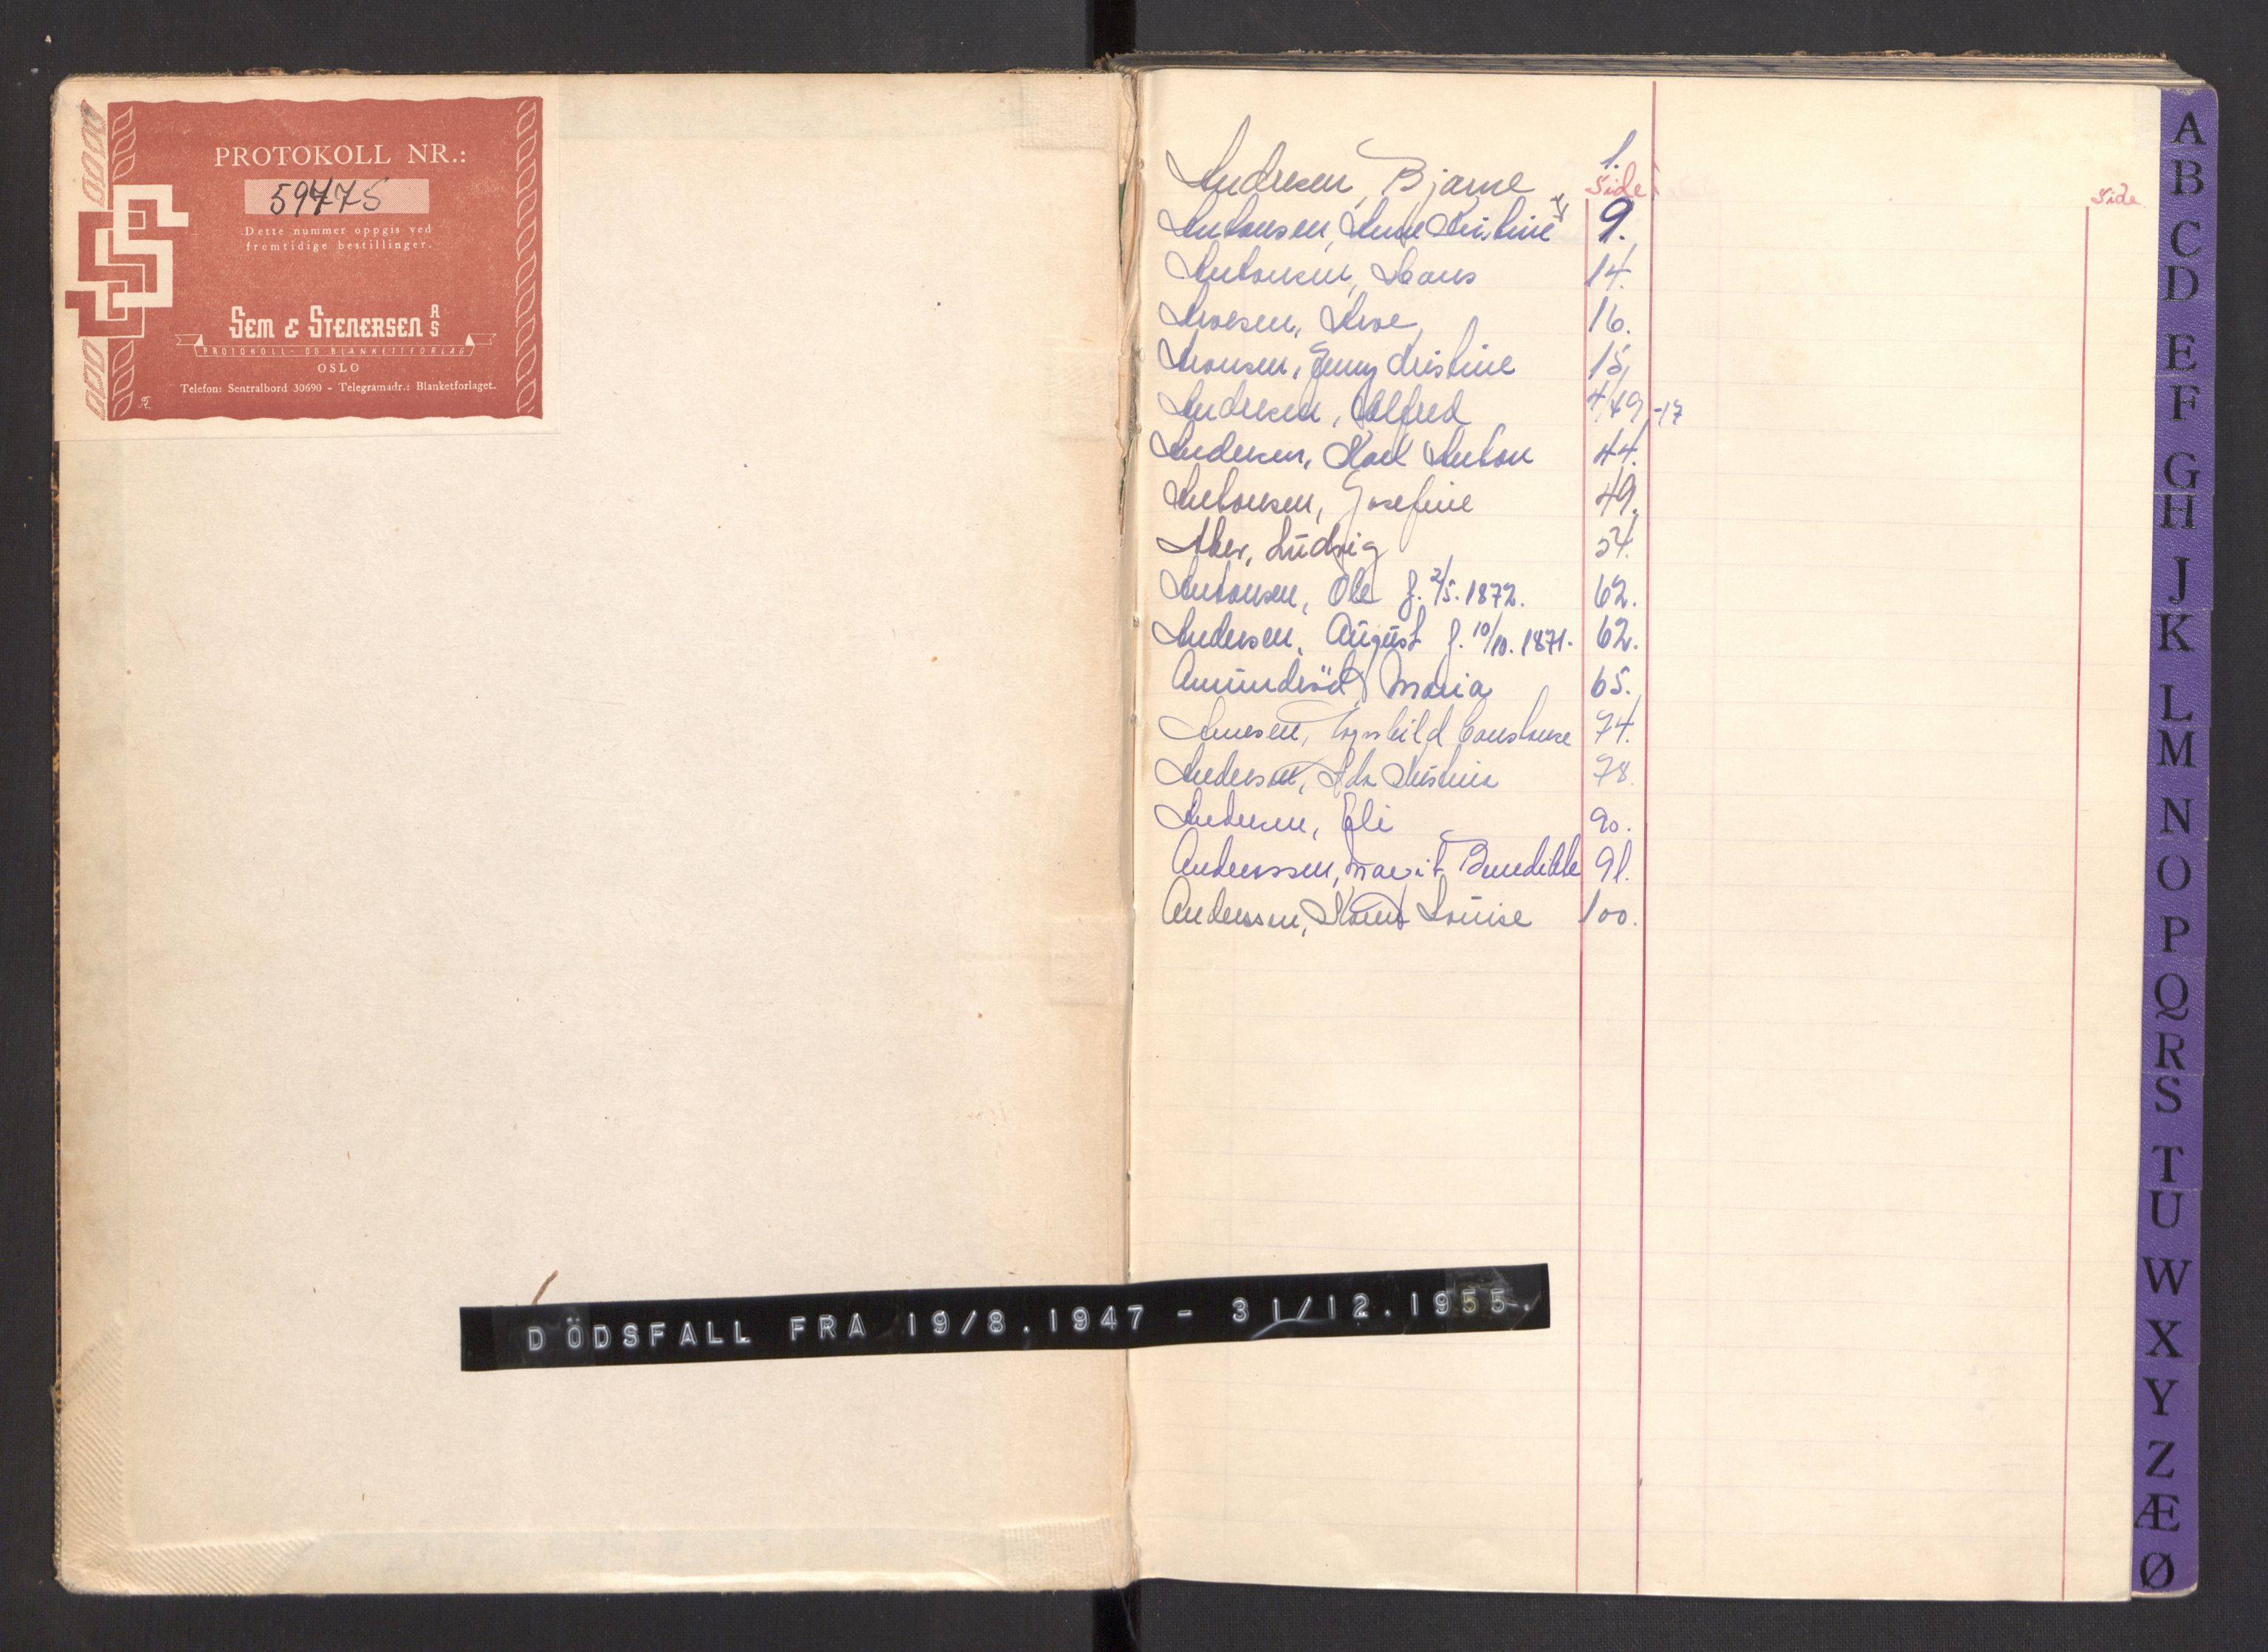 PROTOKOLL NR.:
59475
Dette nummer oppgis ved
fremtidige bestillinger.
SEM & STENERSEN A/S
PROTOKOLL- OG BLANKETTFORLAG
OSLO
Telefon: Sentralbord 30690 - Telegramadr.: Blanketforlaget.
DÖDSFALL FRA 19/8.1947 - 31/12.1955.
Side
Side
Andresen, Bjarne 1.
Antonsen, Anne Kristine 9.
Antonsen, Hans 14.
Aroesen, Aroe 16.
Aronsen, Jenny Kristine 15.
Andresen, Alfred 4/49-17
Andersen, Karl Anton 44.
Antonsen, Josefine 49.
Aker, Ludvig 54.
Antonsen, Ole f. 2/5.1872. 62.
Andersen, August f. 10/10.1871. 62.
Amundröd, Maria 65.
Arnesen, Constance 74.
Andersen, Ida Kristina 78.
Andersen, Eli 90.
Anderssen, Marit Benedikte 91.
Anderssen, Louise 100.
A
B
C
D
E
F
G
H
J
K
L
M
N
O
P
Q
R
S
T
U
W
X
Y
Z
Æ
Ø